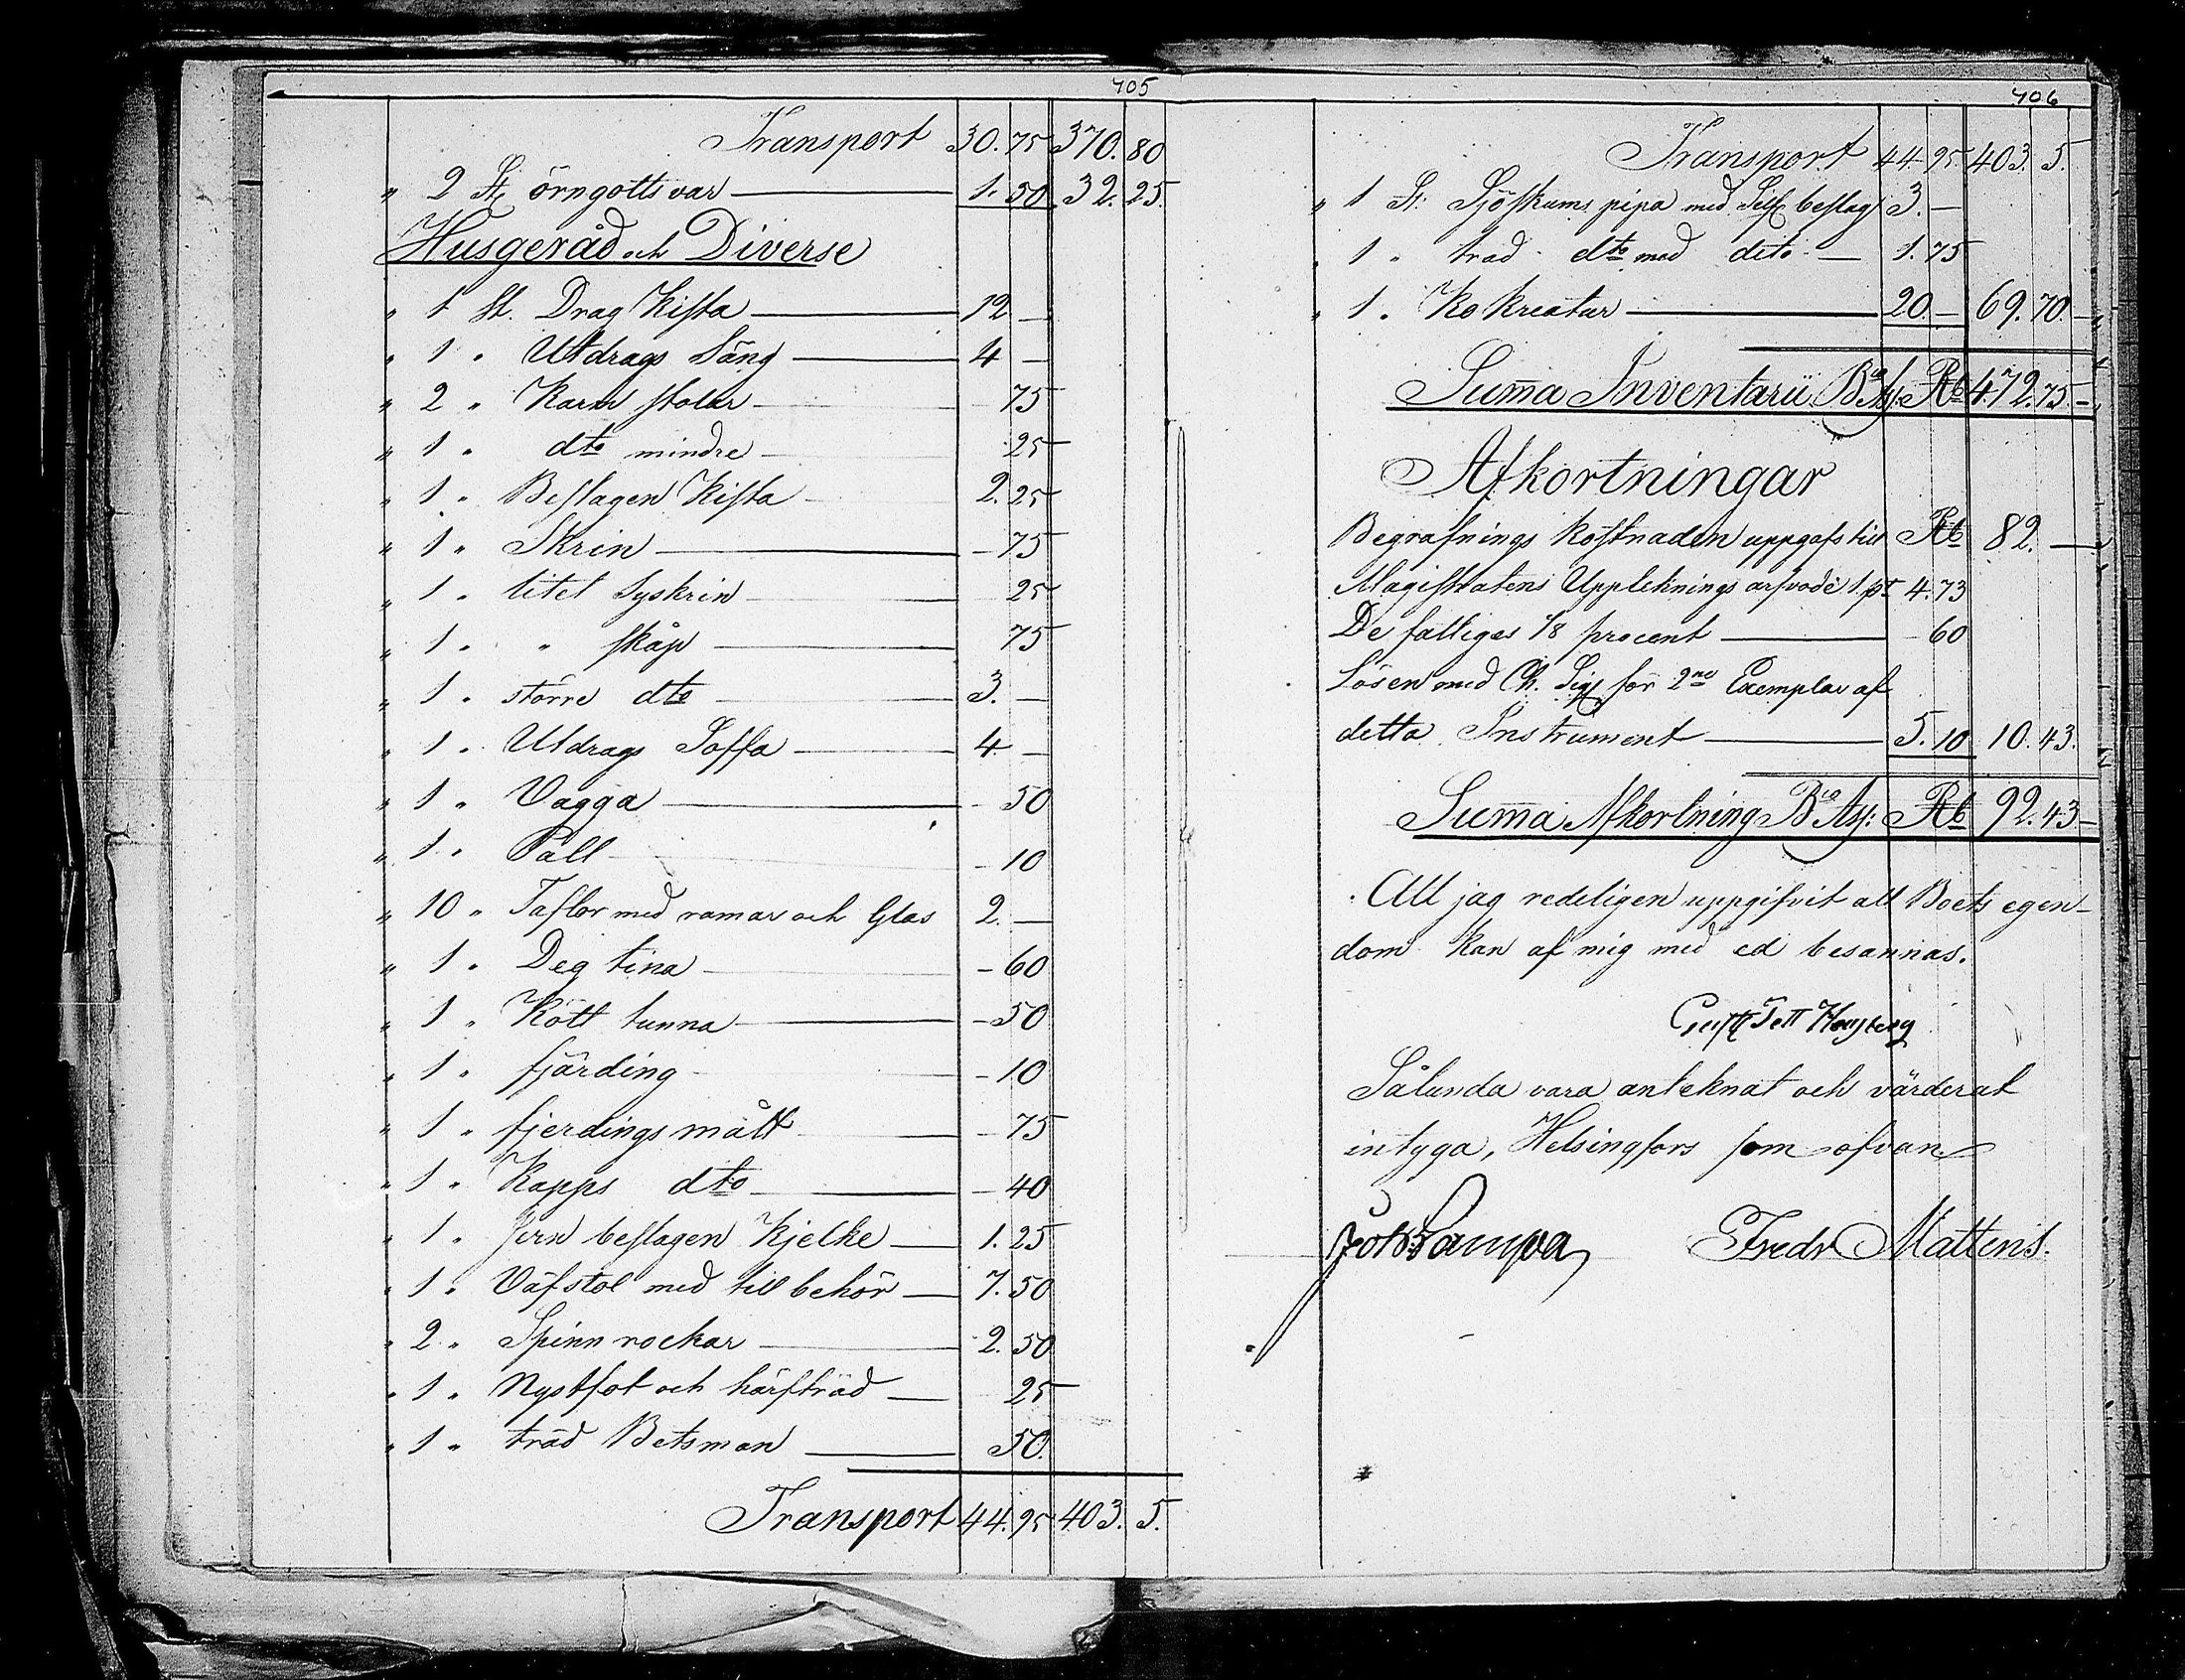 405
Transport 30. 75 370. 80
" 2 St örngottsvar 1. 50 32. 25.
Husgeråd och Diverse
" 1 St. Drag Kista 12 —
" 1 " Utdrags Säng 4 —
" 2 " Karm stolar 75
" 1 " dto mindre 25
" 1 " Beslagen Kista 2. 25
" 1 " Skrin — 75
" 1 " litet Syskrin 25
" 1 " " skåp 75
" 1 " större dto 3. —
" 1 " Utdrags Soffa 4. —
" 1 " Vagga — 50
" 1 " Pall — 10
" 10 " Taflor med ramar och Glas 2. —
" 1 " Deg tina — 60
" 1 " Kött tunna — 50
" 1 " fjärding — 10
" 1 " fjerdings mått — 75
" 1 " Kapps dto — 40
" 1 " Jern beslagen Kjelke 1. 25
" 1 " Väfstol med till behör 7. 50
" 2 " Spinn rockar 2. 50
" 1 " Nystfot och härfträd 25
" 1 " träd Betsman 50.
Transport 44. 95 403. 5.
406
Transport 44. 95 403. 5.
" 1 St. Sjöskums pipa med Silf beslag 3. —
" 1 " träd dto med dito 1. 75
" 1 " Ko kreatur 20. — 69. 70. —
Summa Inventarii Bco Ass: Rb 472. 75. —
Afkortningar
Begrafnings kostnaden uppgafs till Rb 82. —
Magistratens Uppteknings arfvode 1. pt 4. 73
De fattiges 1/8 procent — 60
Lösen med Ch. Sig för 2ne Exemplar af
detta Instrument 5. 10 10. 43.
Summa Afkortning Bco Ass: Rb 92. 43 —
Att jag redeligen uppgifvit all Boets egen-
dom kan af mig med ed besannas.
Sålunda vara anteknat och värderat
intyga, Helsingfors som ofvan
Fredr Mattens.